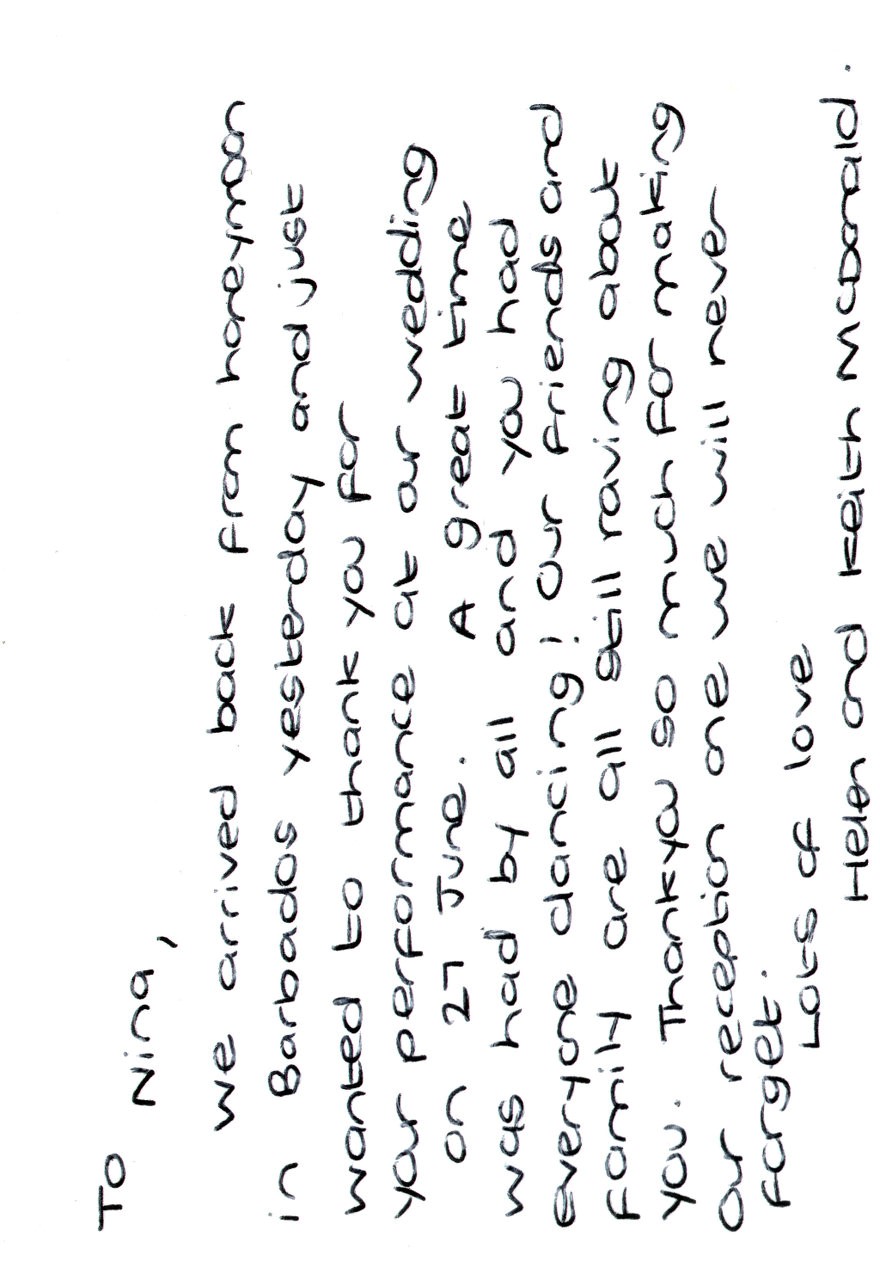 To
Nina,
We arrived back from honeymoon
in Barbados yesterday and just
wanted to thank you for
your performance at our wedding
on 27 June. A great time
was had by all and you had
everyone dancing! Our friends and
family are all still raving about
you. Thankyou so much for making
Our reception one we will never
forget.
Lots of love
Helen and Keith McDonald.